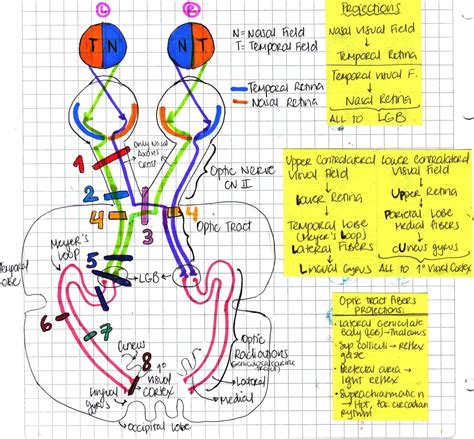 L
R
T N
N T
N= Nasal Field
T= Temporal Field
Temporal Retina
Nasal Retina
Only Nasal
Axons
Cross
1
2
3
4
4
5
6
7
8
Optic Nerve
CN II
Optic Tract
Meyer's
Loop
Temporal
Lobe
LGB
Optic
Radiations
(Geniculocalcarine
tract)
Lateral
Medial
Cuneus
1°
Visual
CORTEX
Lingual
Gyrus
Occipital Lobe
Projections
Nasal Visual Field
Temporal Retina
Temporal Visual F.
Nasal Retina
ALL TO LGB
Upper Contralateral
Visual Field
Lower Retina
Temporal Lobe
(Meyer's Loop)
Lateral Fibers
Lingual Gyrus
Lower Contralateral
Visual Field
Upper Retina
Parietal Lobe
Medial Fibers
cUneus gyrus
ALL TO 1° Visual Cortex
Optic Tract Fibers
Projections:
- Lateral Geniculate
Body (LGB) → Thalamus
- Sup Colliculi → Reflex
gaze
- Pretectal area →
light reflex
- Suprachiasmatic n
→ Hpt, for circadian
rhythm